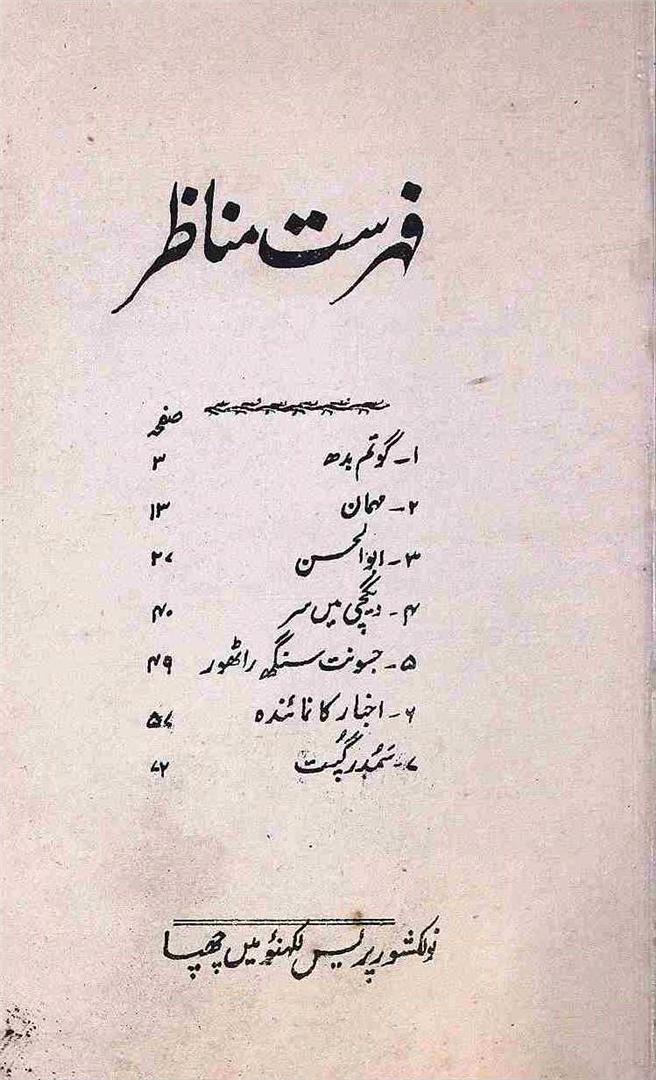 فہرست مناظر
صفحہ
۱۔ گوتم بدھ ۳
۲۔ مہمان ۱۳
۳۔ ابوالحسن ۲۷
۴۔ دیگچی میں سر ۴۰
۵۔ جسونت سنگھ راٹھور ۴۹
۶۔ اخبار کا نمائندہ ۵۷
۷۔ سَمُدر گُپت ۷۲
نولکشور پریس لکھنؤ میں چھپا